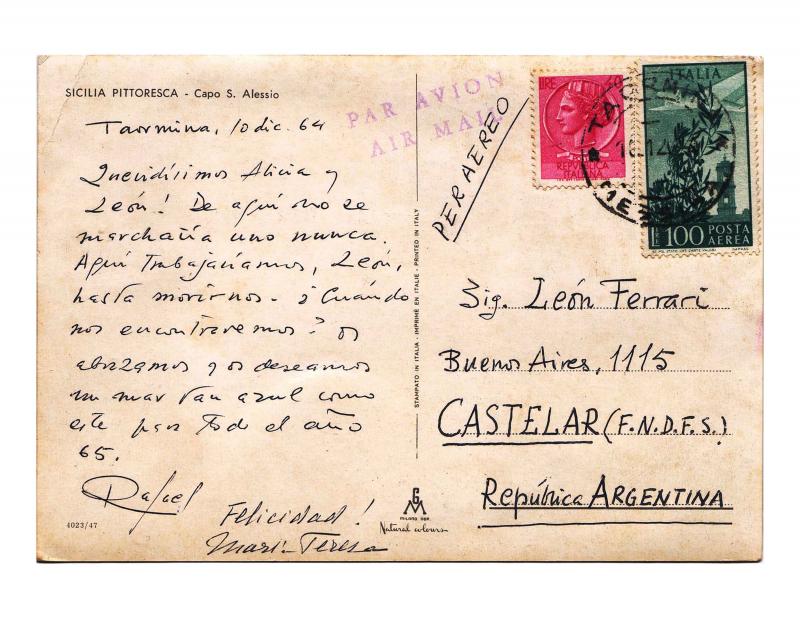 SICILIA PITTORESCA - Capo S. Alessio
Taormina, 10 dic. 64
Queridísimos Alicia y
León! De aquí no se
marcharía uno nunca.
Aquí trabajaríamos, León,
hasta morirnos. ¿Cuándo
nos encontraremos? Os
abrazamos y os deseamos
un mar tan azul como
este para todo el año
65.
Rafael
Felicidad!
María Teresa
4023/47
STAMPATO IN ITALIA - IMPRIMÉ EN ITALIE - PRINTED IN ITALY
MILANO
Natural colours
PAR AVION
AIR MAIL
PER AEREO
LIRE
REPUBBLICA
ITALIANA
TAORMINA
ITALIA
LIRE 100 POSTA
AEREA
Sig. León Ferrari
Buenos Aires, 1115
CASTELAR (F.N.D.F.S.)
República ARGENTINA